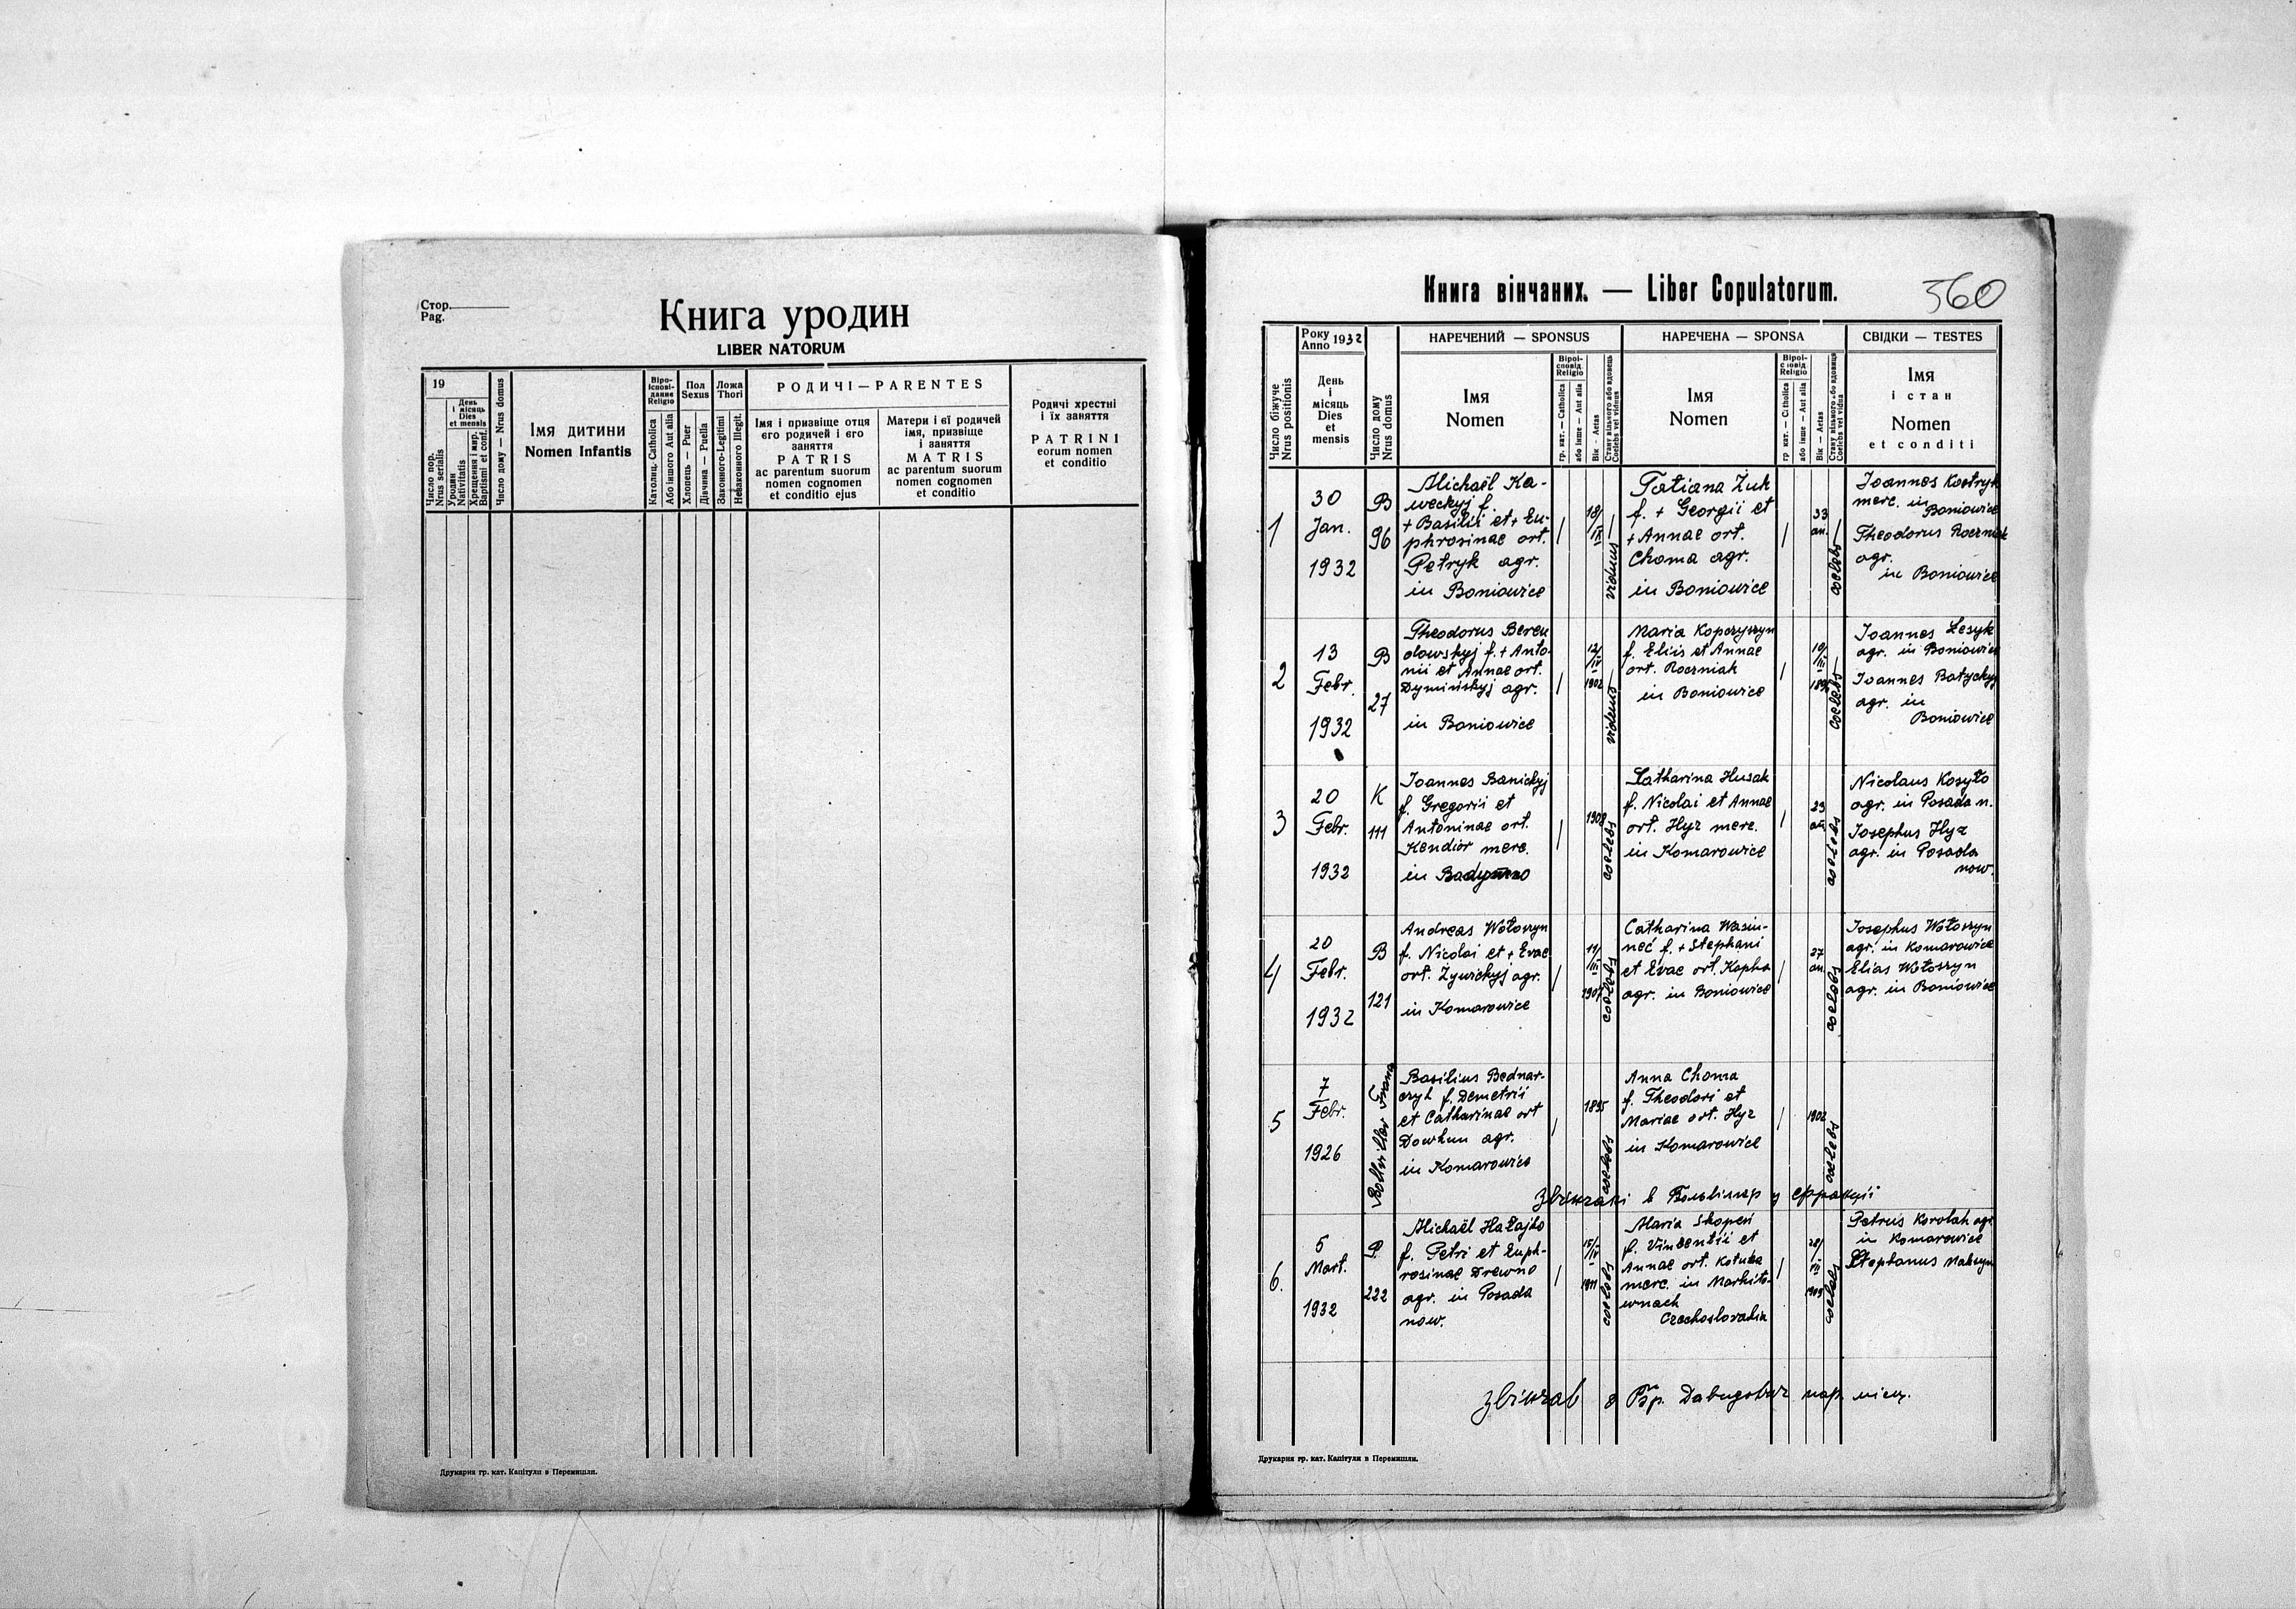 Стор.
Pag.
Книга уродин
LIBER NATORUM
19
Число пор.
Nrus serialis
День
і місяць
Dies
et mensis
Уродин
Nativitatis
Хрещення і мир.
Baptismi et conf.
Число дому — Nrus domus
Імя дитини
Nomen Infantis
Віро-
ісповi-
дание
Religio
Католиц. Catholica
Або іншого Aut alia
Пол
Sexus
Хлопець — Puer
Дівчина — Puella
Ложа
Thori
Законного-Legitimi
Незаконного Illegit.
РОДИЧІ — PARENTES
Імя і призвіще отця
єго родичей і єго
заняття
PATRIS
ac parentum suorum
nomen cognomen
et conditio ejus
Матери і єї родичей
імя, призвіще
і заняття
MATRIS
ac parentum suorum
nomen cognomen
et conditio
Родичі хрестні
і їх заняття
PATRINI
eorum nomen
et conditio
Друкарня гр. кат. Капітули в Перемишли.
Книга вінчаних. — Liber Copulatorum.
360
Число біжуче
Nrus positionis
Року
Anno 1932
День
і
місяць
Dies
et
mensis
Число дому
Nrus domus
НАРЕЧЕНИЙ — SPONSUS
Імя
Nomen
Віроі-
сповід
Religio
гр. кат. — Catholica
або інше — Aut alia
Вік — Aetas
Стану вільного або вдовець
Coelebs vel viduus
НАРЕЧЕНА — SPONSA
Імя
Nomen
Віроі-
сповід
Religio
гр кат. — Catholica
або інше — Aut alia
Вік — Aetas
Стану вільного або вдовиця
Coelebs vel vidua
СВІДКИ — TESTES
Імя
і стан
Nomen
et conditi
1
30
Jan.
1932
B
96
Michaël Ka-
weckyj f.
+ Basilii et + Eu-
phrosinae ort.
Petryk agr.
in Boniowice
/
18/
IX
viduus
Tatiana Żuk
f. + Georgii et
+ Annae ort.
Choma agr.
in Boniowice
/
33
an.
coelebs
Ioannes Kostryk
merc. in
Boniowice
Theodorus Roczniak
agr.
in Boniowice
2
13
Febr.
1932
B
27
Theodorus Beren
dowskyj f. + Anto-
nii et Annae ort.
Dymińskyj agr.
in Boniowice
/
12/
IV
1902
viduus
Maria Kopczyszyn
f. Eliis et Annae
ort. Roczniak
in Boniowice
/
19/
III
coelebs
Ioannes Lesyk
agr. in Boniowice
Ioannes Batyckyj
agr. in
Boniowice
3
20
Febr.
1932
K
111
Ioannes Banickyj
f. Gregorii et
Antoninae ort.
Kendior merc.
in
/
1908
coelebs
Catharina Husak
f. Nicolai et Annae
ort. Hyz merc.
in Komarowice
/
23
an
coelebs
Nicolaus Kosyło
agr. in Posada n.
Iosephus Hyz
agr. in Posada
now.
4
20
Febr.
1932
B
121
Andreas Wołoszyn
f. Nicolai et + Evae
ort. Żywickyj agr.
in Komarowice
/
11/
III
1907
coelebs
Catharina Wasiu-
neć f. + Stephani
et Evae ort. Kapko
agr. in Boniowice
/
27
an.
coelebs
Iosephus Wołoszyn
agr. in Komarowice
Elias Wołoszyn
agr. in Boniowice
5
7
Febr.
1926
Basilius Bednar-
czyk f. Demetrii
et Catharinae ort
Dowhun agr.
in Komarowice
/
1895
coelebs
Anna Choma
f. Theodori et
Mariae ort. Hyz
in Komarowice
/
1902
coelebs
звінчані в Больвілєр у Франції
6.
5
Mart.
1932
P.
222
Michaël Hałajko
f. Petri et Euph-
rosinae Drewno
agr. in Posada
now.
/
15/
IV
1911
coelebs
Maria Skopen
f. Vincentii et
Annae ort.
merc. in Markito-
wnach
Czechoslovakia
/
28/
III
1909
coelebs
Petrus Korolak agr.
in Komarowice
Stephanus
звінчав о Гр. Давидович пар. місц.
Друкарня гр. кат. Капітули в Перемишли.